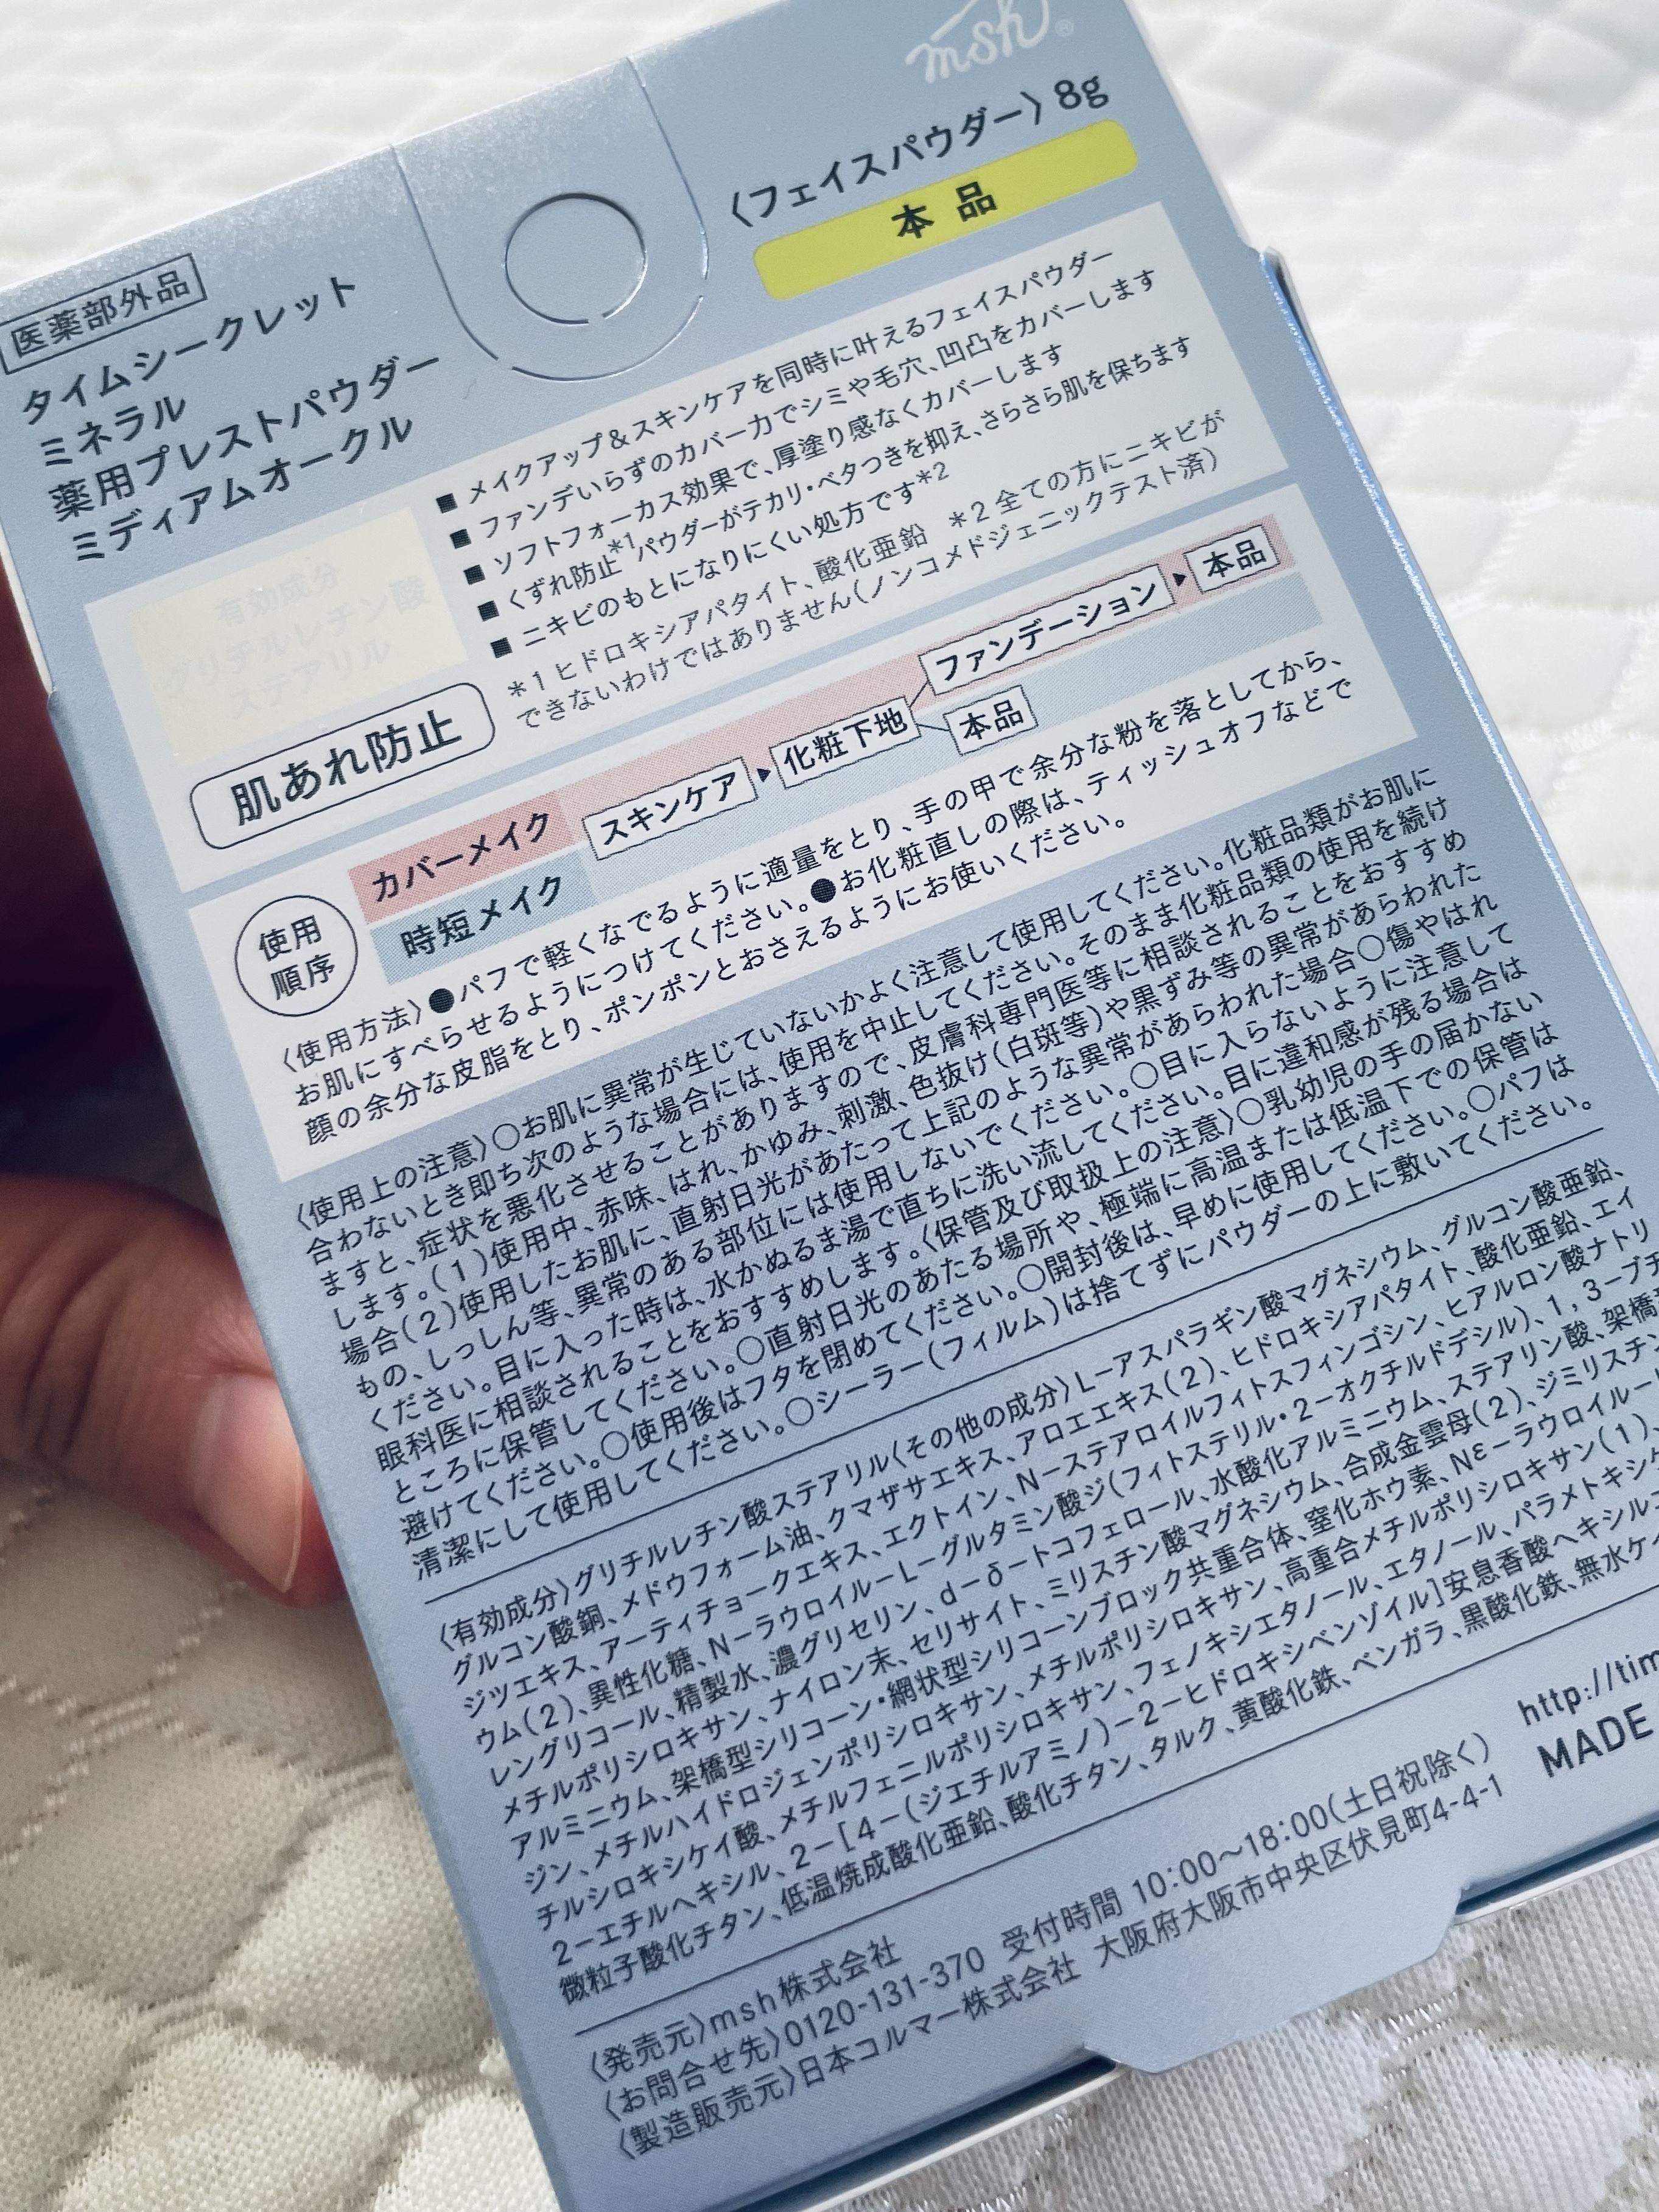 msh®
〈フェイスパウダー〉8g
本品
医薬部外品
タイムシークレット
ミネラル
薬用プレストパウダー
ミディアムオークル
有効成分
グリチルレチン酸
ステアリル
肌あれ防止
■ メイクアップ＆スキンケアを同時に叶えるフェイスパウダー
■ ファンデいらずのカバー力でシミや毛穴、凹凸をカバーします
■ ソフトフォーカス効果で、厚塗り感なくカバーします
■ くずれ防止*1パウダーがテカリ・ベタつきを抑え、さらさら肌を保ちます
■ ニキビのもとになりにくい処方です*2
＊1 ヒドロキシアパタイト、酸化亜鉛　＊2 全ての方にニキビが
できないわけではありません（ノンコメドジェニックテスト済）
使用
順序
カバーメイク
時短メイク
スキンケア▶化粧下地
ファンデーション▶本品
本品
〈使用方法〉●パフで軽くなでるように適量をとり、手の甲で余分な粉を落としてから、
お肌にすべらせるようにつけてください。●お化粧直しの際は、ティッシュオフなどで
顔の余分な皮脂をとり、ポンポンとおさえるようにお使いください。
〈使用上の注意〉○お肌に異常が生じていないかよく注意して使用してください。化粧品類がお肌に
合わないとき即ち次のような場合には、使用を中止してください。そのまま化粧品類の使用を続け
ますと、症状を悪化させることがありますので、皮膚科専門医等に相談されることをおすすめ
します。（1）使用中、赤味、はれ、かゆみ、刺激、色抜け（白斑等）や黒ずみ等の異常があらわれた
場合（2）使用したお肌に、直射日光があたって上記のような異常があらわれた場合○傷やはれ
もの、しっしん等、異常のある部位には使用しないでください。○目に入らないように注意して
ください。目に入った時は、水かぬるま湯で直ちに洗い流してください。目に違和感が残る場合は
眼科医に相談されることをおすすめします。〈保管及び取扱上の注意〉○乳幼児の手の届かない
ところに保管してください。○直射日光のあたる場所や、極端に高温または低温下での保管は
避けてください。○使用後はフタを閉めてください。○開封後は、早めに使用してください。○パフは
清潔にして使用してください。○シーラー（フィルム）は捨てずにパウダーの上に敷いてください。
〈有効成分〉グリチルレチン酸ステアリル〈その他の成分〉L－アスパラギン酸マグネシウム、グルコン酸亜鉛、
グルコン酸銅、メドウフォーム油、クマザサエキス、アロエエキス（2）、ヒドロキシアパタイト、酸化亜鉛、エイ
ジツエキス、アーティチョークエキス、エクトイン、N－ステアロイルフィトスフィンゴシン、ヒアルロン酸ナトリ
ウム（2）、異性化糖、N－ラウロイル－L－グルタミン酸ジ（フィトステリル・2－オクチルドデシル）、1，3－ブチ
レングリコール、精製水、濃グリセリン、d－δ－トコフェロール、水酸化アルミニウム、ステアリン酸、架橋型
メチルポリシロキサン、ナイロン末、セリサイト、ミリスチン酸マグネシウム、合成金雲母（2）、ジミリスチン
アルミニウム、架橋型シリコーン・網状型シリコーンブロック共重合体、窒化ホウ素、Nε－ラウロイル－L
ジン、メチルハイドロジェンポリシロキサン、メチルポリシロキサン、高重合メチルポリシロキサン（1）、
チルシロキシケイ酸、メチルフェニルポリシロキサン、フェノキシエタノール、エタノール、パラメトキシケ
2－エチルヘキシル、2－［4－（ジエチルアミノ）－2－ヒドロキシベンゾイル］安息香酸ヘキシルエ
微粒子酸化チタン、低温焼成酸化亜鉛、酸化チタン、タルク、黄酸化鉄、ベンガラ、黒酸化鉄、無水ケイ
〈発売元〉msh株式会社
〈お問合せ先〉0120-131-370 受付時間 10：00～18：00（土日祝除く）
〈製造販売元〉日本コルマー株式会社 大阪府大阪市中央区伏見町4-4-1
http://tim
MADE